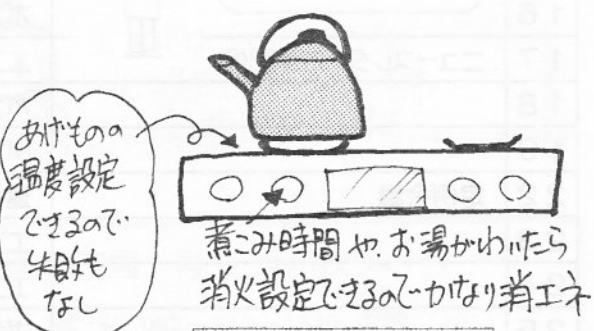 あげものの
温度設定
できるので
失敗も
なし
煮こみ時間や、お湯がわいたら
消火設定できるのでかなり消エネ